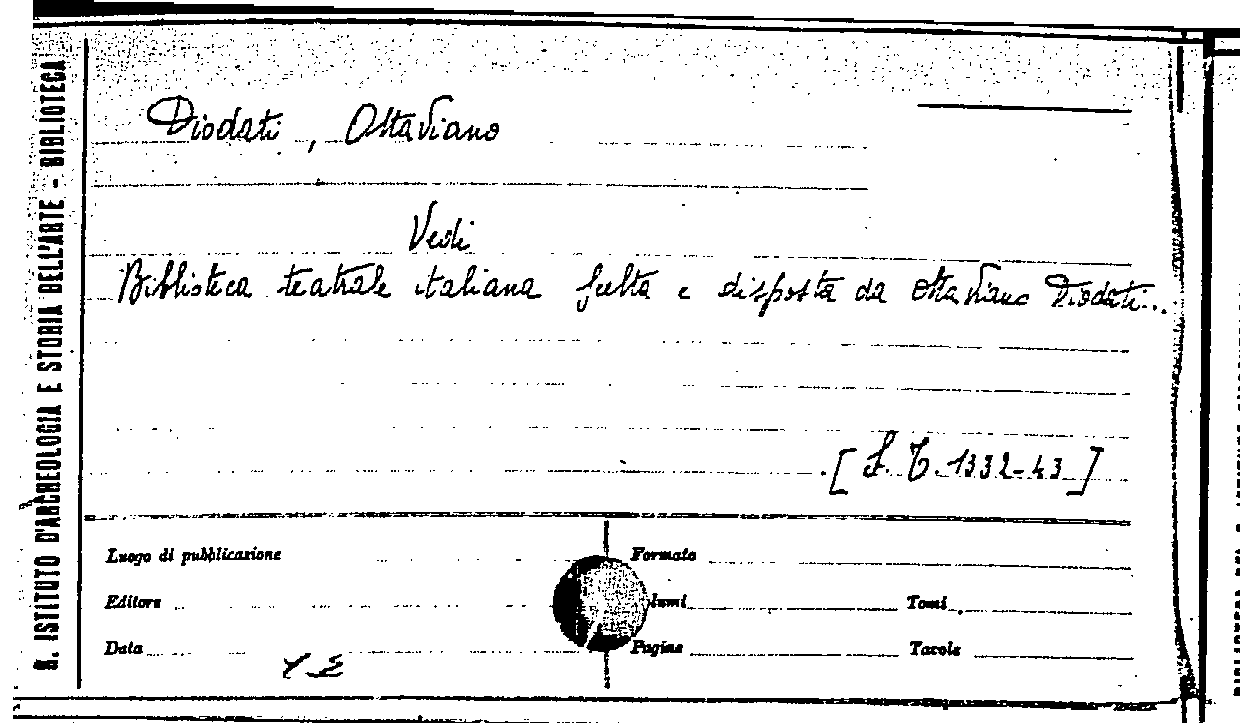 R. ISTITUTO D'ARCHEOLOGIA E STORIA DELL'ARTE - BIBLIOTECA
Diodati, Ottaviano
Vedi
Biblioteca teatrale italiana scelta e disposta da Ottaviano Diodati...
[S. T. 1332-43]
Luogo di pubblicazione
Formato
Editore
lumi
Tomi
Data
Pagine
Tavole